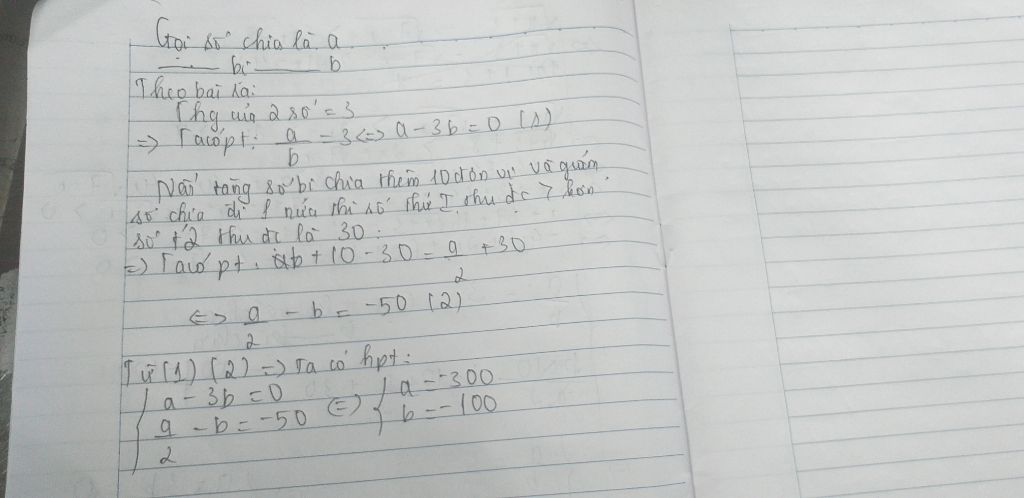 Gọi số chia là a
____ bị ____ b
Theo bài ra:
Thg của 2 số = 3
=> Ta có pt: a/b = 3 <=> a - 3b = 0 (1)
Nếu tăng số bị chia thêm 10 đơn vị và giảm
số chia đi 1 nửa thì số thứ I thu đc > hơn
số t2 thu đc là 30:
=> Ta có pt: b + 10 - 30 = a/2 + 30
<=> a/2 - b = -50 (2)
Từ (1) (2) => Ta có hpt:
{ a - 3b = 0
{ a/2 - b = -50 <=> { a = -300
{ b = -100